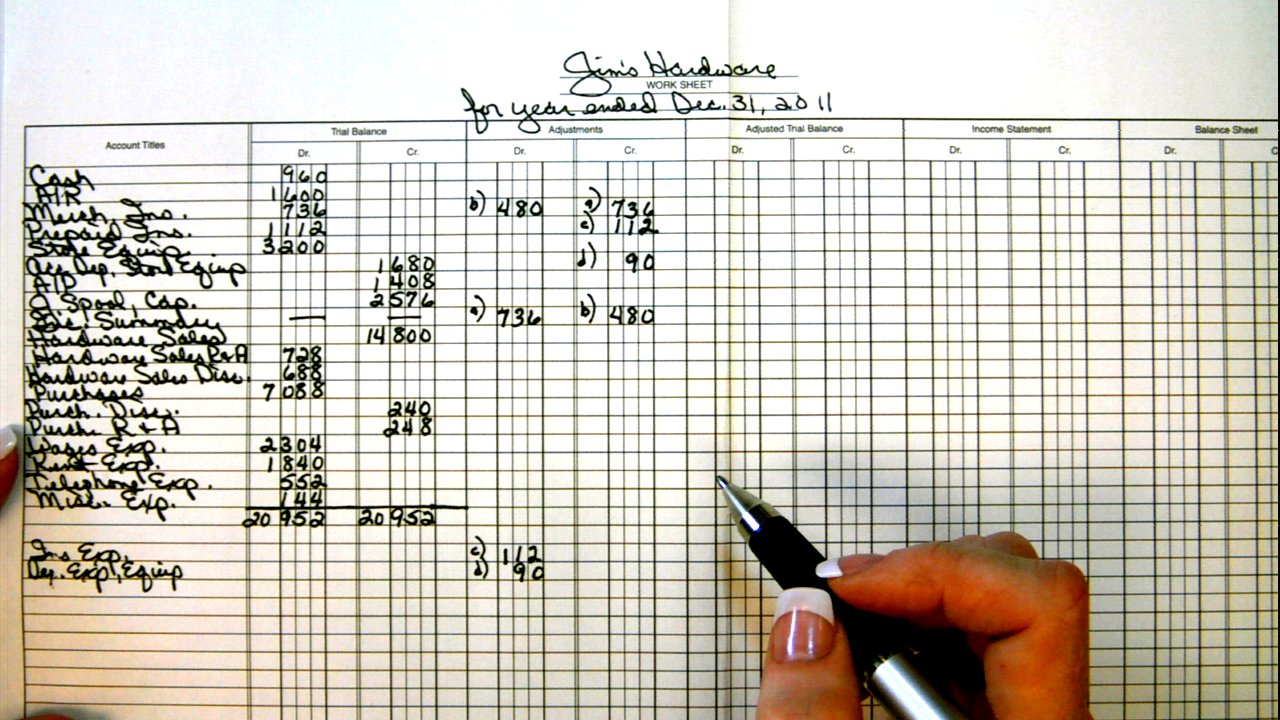 Jim's Hardware
WORK SHEET
for year ended Dec. 31, 2011
Account Titles Trial Balance Adjustments Adjusted Trial Balance Income Statement Balance Sheet
Dr. Cr. Dr. Cr. Dr. Cr. Dr. Cr. Dr. C
Cash 960
A/R 1600
Merch. Inv. 736 b) 480 a) 736
Prepaid Ins. 1112 c) 112
Store Equip. 3200
Acc. Dep. Store Equip 1680 d) 90
A/P 1408
J. Spool, Cap. 2576
Inc. Summary — — a) 736 b) 480
Hardware Sales 14800
Hardware Sales R+A 728
Hardware Sales Disc. 688
Purchases 7088
Purch. Disc. 240
Purch. R + A 248
Wages Exp. 2304
Rent Exp. 1840
Telephone Exp. 552
Misc. Exp. 144
20952 20952
Ins Exp. c) 112
Dep. Exp., Equip d) 90